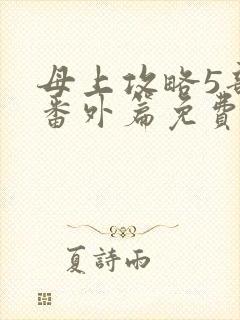 母上攻略5部
番外篇免費
夏詩雨